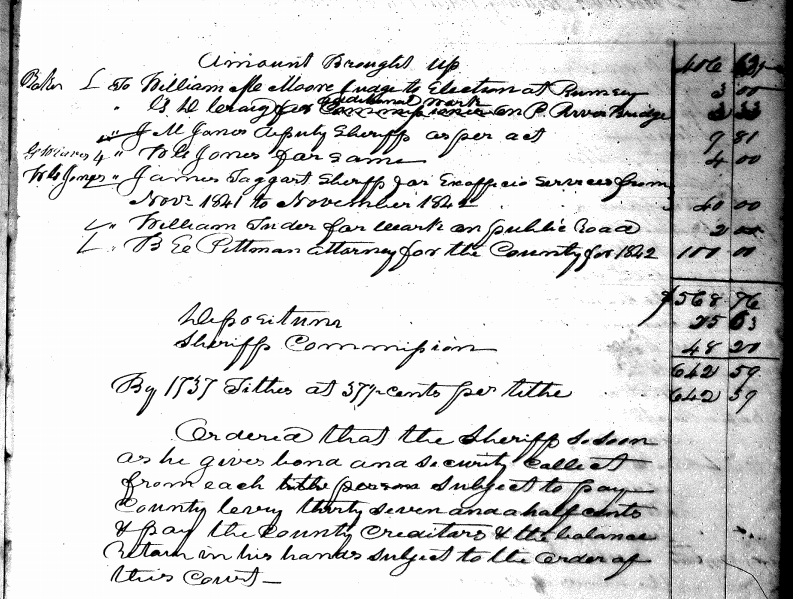 Amount Brought Up 406 63
Baker L To William Mc Moore Judge to Election at Rumsey 3 00
" G W Craig for additional work on P. River Bridge 3 33
" J M Jones deputy Sheriff as per act 9 81
G Weaver 4 " W G Jones for same 4 00
W G Jones " James Taggart Sheriff for Exofficio Services from
Novr 1841 to November 1842 40 00
L " William for work on public Road 2 00
L " B E Pittman attorney for the County for 1842 100 00
$568 76
Depositum 25 63
Sheriffs Commission 48 20
642 59
By 1737 Tithes at 37½ cents per tithe 642 59
Ordered that the Sheriff so soon
as he gives bond and security Collect
from each tithe person subject to pay
County levy thirty seven and a half cents
& pay the County Creditors & the balance
Retain in his hands subject to the order of
this Court —